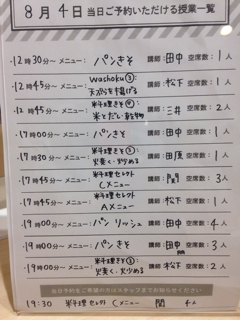 8月4日 当日ご予約いただける授業一覧
・12時30分～ メニュー： パンきそ 講師：田中 空席数：1人
・12時45分～ メニュー： washoku③： 天ぷらを揚げる 講師：松下 空席数：1人
・12時45分～ メニュー： 料理きそ④： 米とだし・乾物 講師：三井 空席数：2人
・17時00分～ メニュー： パンきそ 講師：田中 空席数：1人
・17時30分～ メニュー： 料理きそ③： 煮く・炒める 講師：田原 空席数：1人
・17時45分～ メニュー： 料理セレクト Cメニュー 講師：関 空席数：3人
・17時45分～ メニュー： 料理セレクト Aメニュー 講師：松下 空席数：1人
・19時00分～ メニュー： パン リッシュ 講師：田中 空席数：4人
・19時00分～ メニュー： パンきそ 講師：田中 関 空席数：3人
・19時00分～ メニュー： 料理きそ③： 煮く・炒める 講師：松下 空席数：2人
当日ご予約をご希望の方はスタッフまでお知らせください
19:30 料理セレクト Cメニュー 関 4人